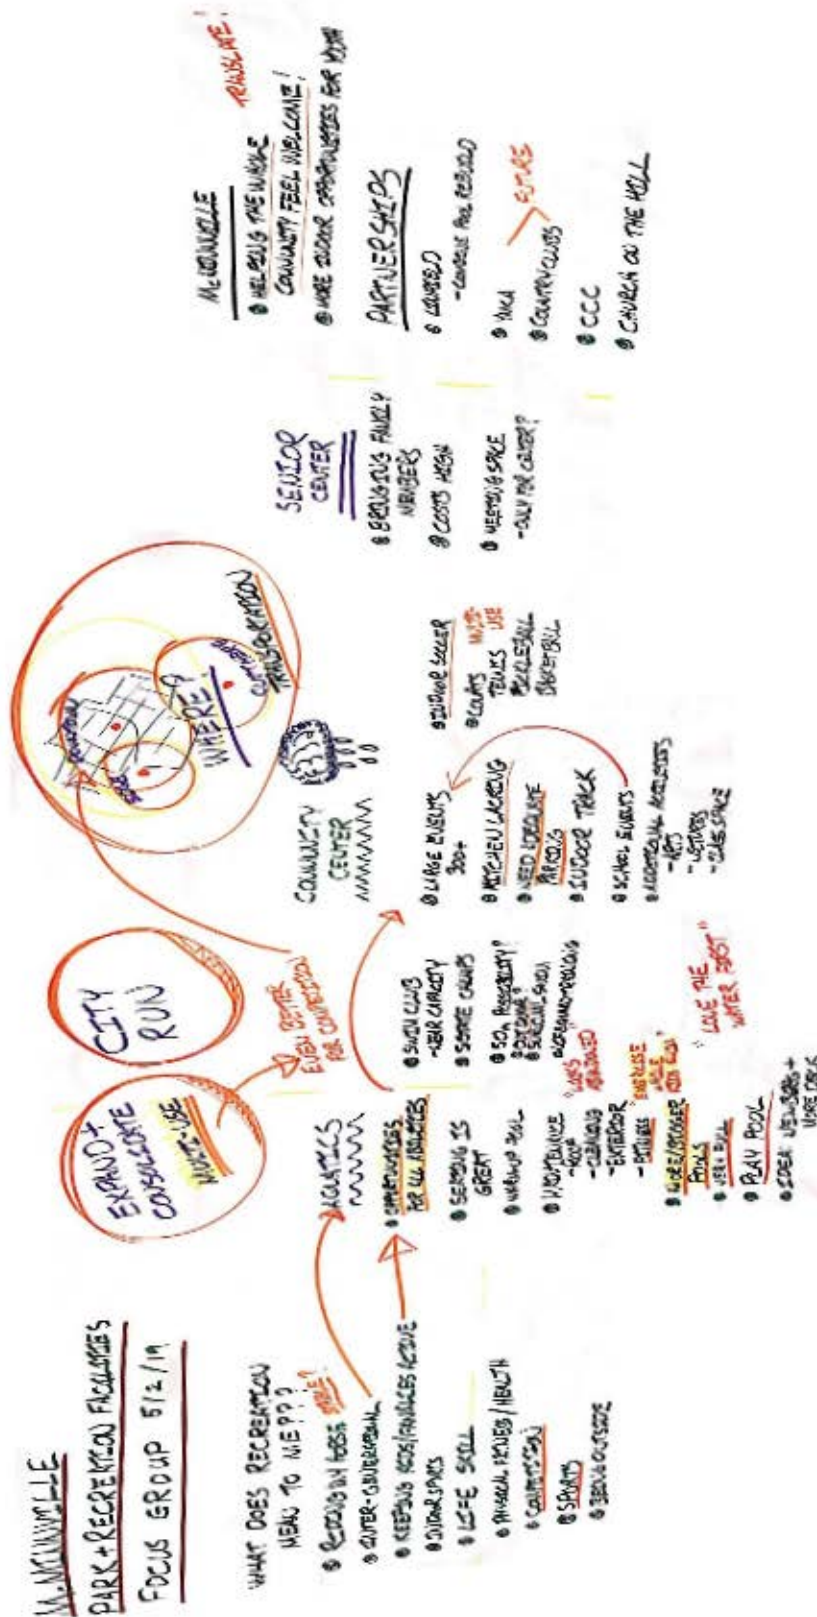 McMINNVILLE
PARK + RECREATION FACILITIES
FOCUS GROUP 5/2/19
WHAT DOES RECREATION
MEAN TO ME???
RIDING MY HORSE STABLE?
INTER-GENERATIONAL
KEEPING KIDS/FAMILIES ACTIVE
INDOOR SPORTS
LIFE SKILL
PHYSICAL FITNESS/HEALTH
COMPETITION
SPORTS
BEING OUTSIDE
EXPAND +
CONSOLIDATE
MULTI-USE
CITY
RUN
EVEN BETTER
FOR COMPETITION
AQUATICS
OPPORTUNITIES
FOR ALL ABILITIES
SEATING IS
GREAT
WARMUP POOL
MAINTENANCE
-ROOF
-CLEANING
-EXTERIOR
-FITNESS
"LOOKS
ABANDONED"
"EXERCISE
WHILE
KIDS SWIM"
MORE/BIGGER
POOLS
PLAY POOL
IDEA: NEWBERG +
MORE DECK
"LOVE THE
WATER FIRST"
SWIM CLUB
-NEAR CAPACITY
SCIENCE CAMPS
50m POSSIBILITY?
SURVIVAL SWIM
COMMUNITY
CENTER
LARGE EVENTS
300+
KITCHEN LACKING
NEED ADEQUATE
PARKING
INDOOR TRACK
SCHOOL EVENTS
ADDITIONAL ACTIVITIES
-ARTS
-LECTURES
-CLASS SPACE
INDOOR SOCCER
COURTS MULTI-
USE
TENNIS
PICKLEBALL
BASKETBALL
DOWNTOWN
WHERE?
TRANSPORTATION
SENIOR
CENTER
BRINGING FAMILY
MEMBERS
COSTS HIGH
MEETING SPACE
-ONLY FOR CENTER?
McMINNVILLE
HELPING THE WHOLE
COMMUNITY FEEL WELCOME!
TRANSLATE!
MORE INDOOR OPPORTUNITIES FOR YOUTH
PARTNERSHIPS
LINFIELD
-COMBINE POOL REBUILD
YMCA
COUNTRY CLUBS
FUTURE
CCC
CHURCH ON THE HILL